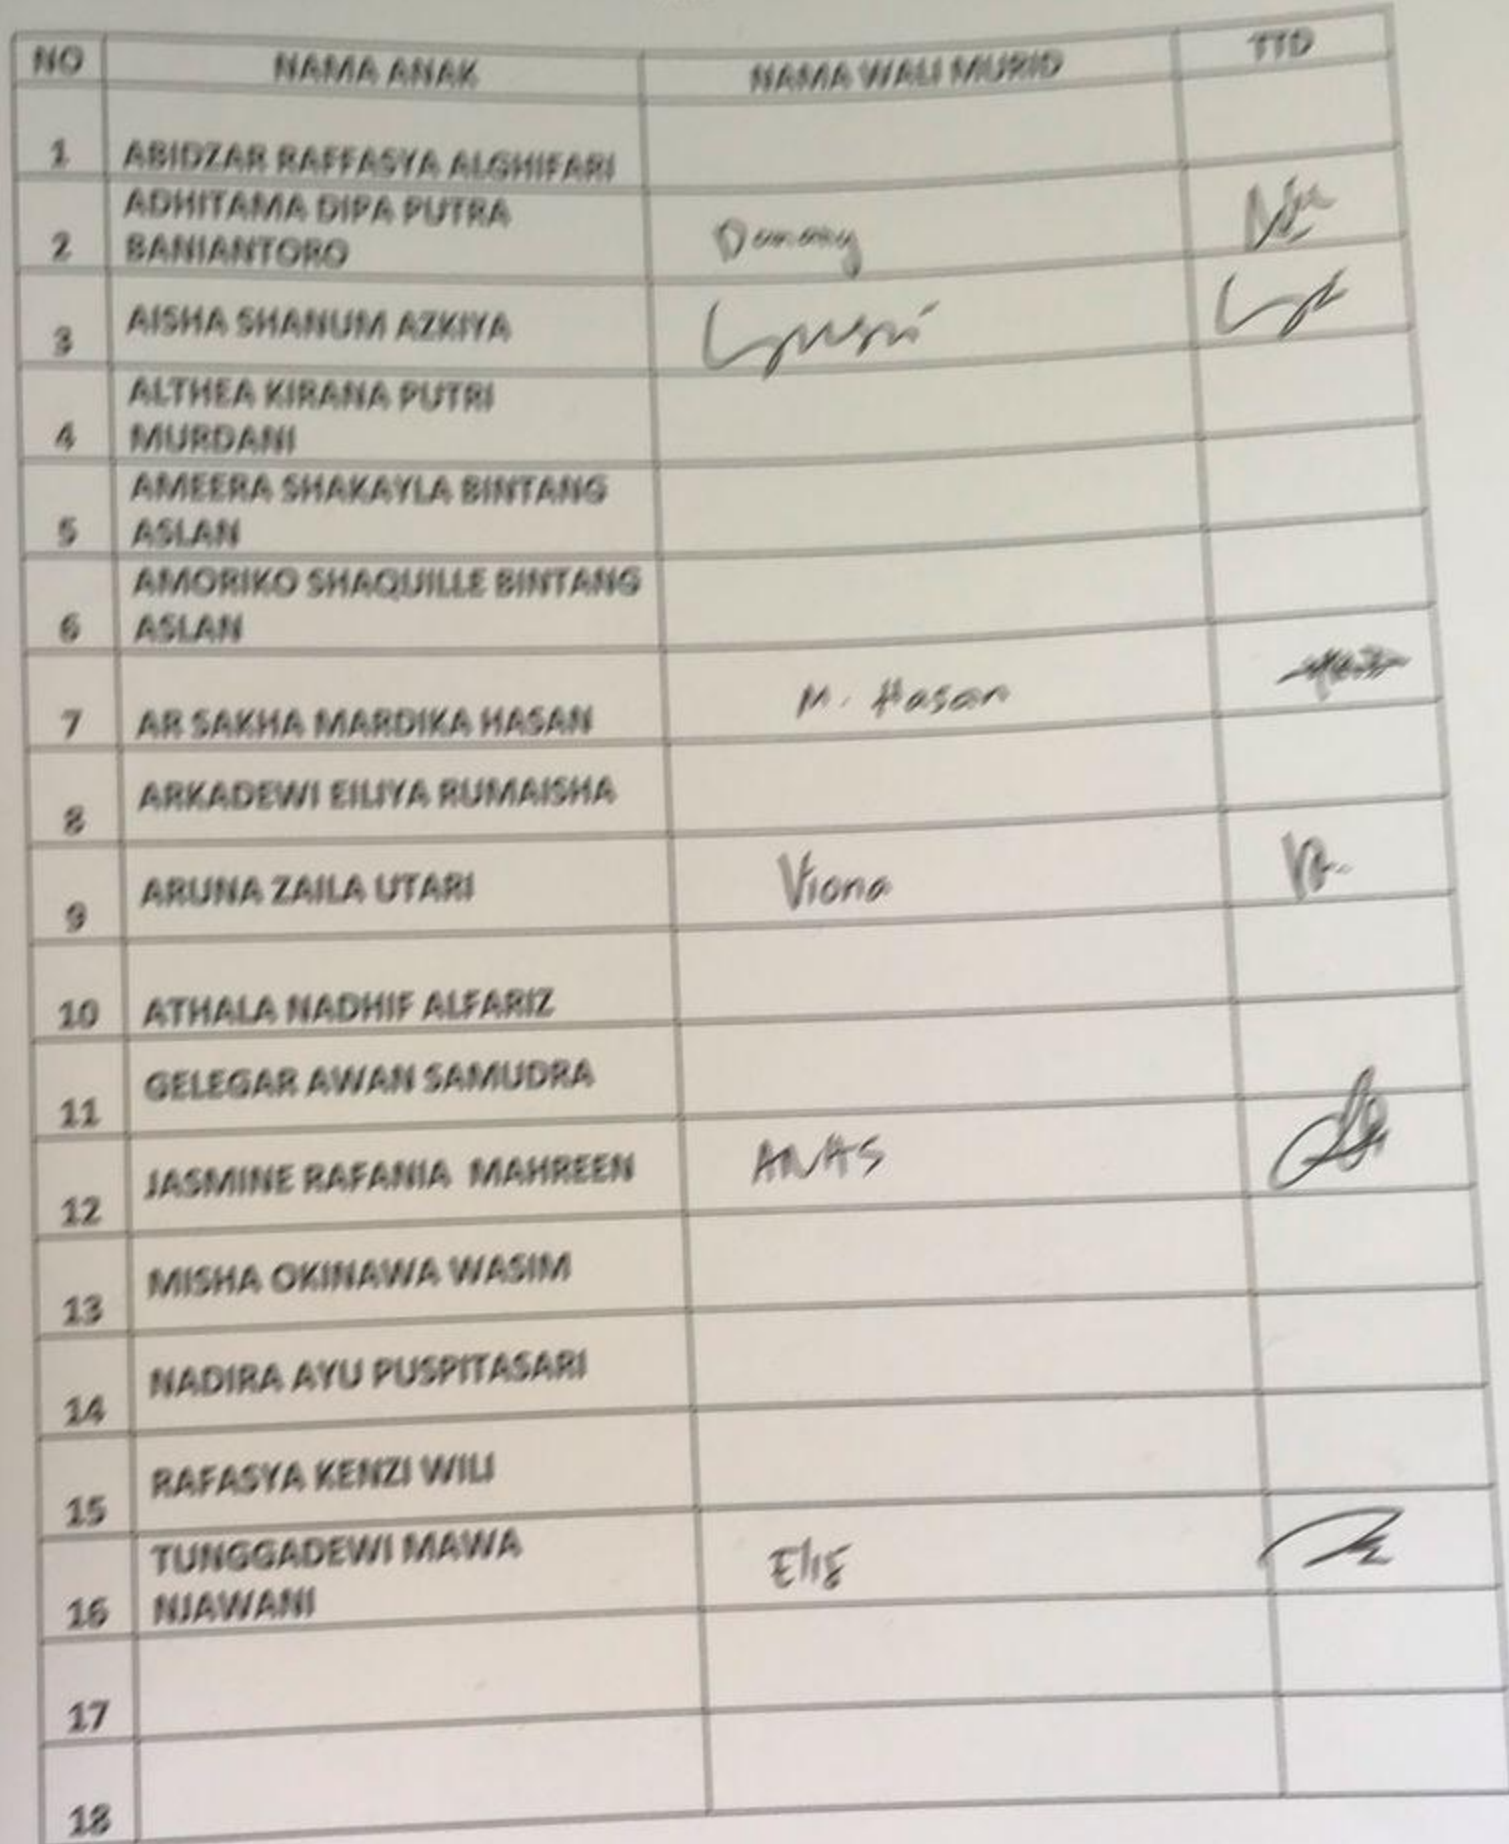 NO NAMA ANAK NAMA WALI MURID TTD
1 ABIDZAR RAFFASYA ALGHIFARI
ADHITAMA DIPA PUTRA
2 BANIANTORO
3 AISHA SHANUM AZKIYA
ALTHEA KIRANA PUTRI
4 MURDANI
AMEERA SHAKAYLA BINTANG
5 ASLAN
AMORIKO SHAQUILLE BINTANG
6 ASLAN
7 AR SAKHA MARDIKA HASAN M. Hasan
8 ARKADEWI EILIYA RUMAISHA
9 ARUNA ZAILA UTARI Viona
10 ATHALA NADHIF ALFARIZ
11 GELEGAR AWAN SAMUDRA
12 JASMINE RAFANIA MAHREEN ANAS
13 MISHA OKINAWA WASIM
14 NADIRA AYU PUSPITASARI
15 RAFASYA KENZI WILI
TUNGGADEWI MAWA
16 NJAWANI
17
18